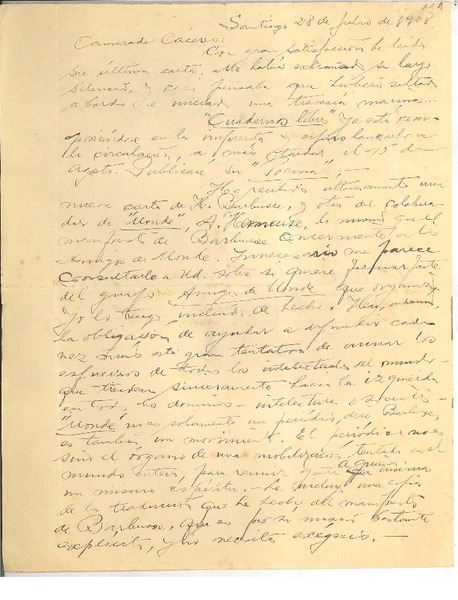 Santiago 28 de Julio de 1928
Camarada Cáceres:
Con gran satisfacción he leído
su última carta. Me había extrañado su largo
silencio, y casi pensaba que hubiera saltado
a bordo e iniciado una travesía marina...
"Cuadernos libres" Ya está com-
poniéndose en la imprenta y espero lanzarlo a
la circulación, a más tardar el 15 de
Agosto. Publicaré su "Poema".
He recibido últimamente una
nueva carta de H. Barbusse, y otra del colabo-
rador de "Monde", A. lo mismo que el
manifiesto de Barbusse concerniente a los
Amigos de Monde. Innecesario me parece
consultarle a Ud. sobre si quiere formar parte
del grupo Amigos de Monde que organizo.
Yo lo tengo incluido de hecho. Hay,
la obligación de ayudar a difundir cada
vez más esta gran tentativa de aunar los
esfuerzos de todos los intelectuales del mundo
que tiendan sinceramente hacia la izquierda
en todos los dominios - intelectual o social.
"Monde" no es solamente un periódico, dice Barbusse,
es también un movimiento. El periódico no es
sino el órgano de una mobilización tentada en el
mundo entero, para reunir gente a quienes anima
un mismo espíritu. - Le incluyo una copia
de la traducción que he hecho del manifiesto
de Barbusse, que es por sí mismo bastante
explícito, y no necesita exégesis. -